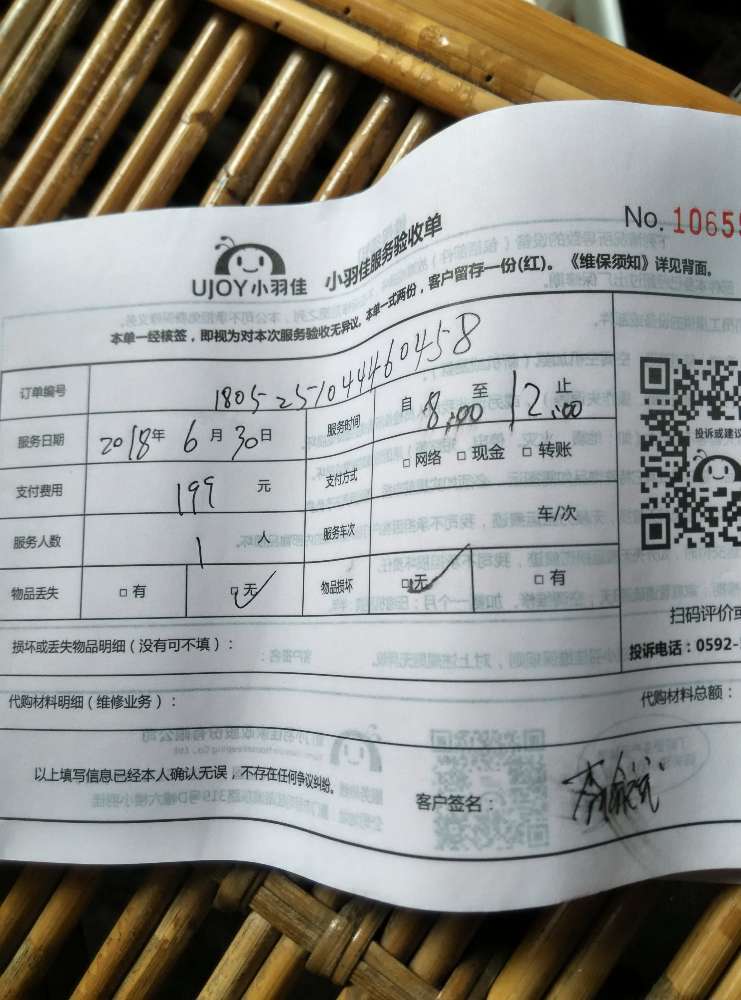 No. 10659
UJOY小羽佳 小羽佳服务验收单
本单一经核签，即视为对本次服务验收无异议。本单一式两份，客户留存一份(红)。《维保须知》详见背面。
订单编号 180525104460458
服务日期 2018年 6 月 30日 服务时间 自 8:00 至 12:00 止
支付费用 199 元 支付方式 □网络 □现金 □转账
投诉或建议
服务人数 1 人 服务车次 车/次
物品丢失 □有 □无 物品损坏 □无 □有
扫码评价或
损坏或丢失物品明细（没有可不填）：
投诉电话：0592-
代购材料明细（维修业务）： 代购材料总额：
以上填写信息已经本人确认无误，不存在任何争议纠纷。
客户签名：